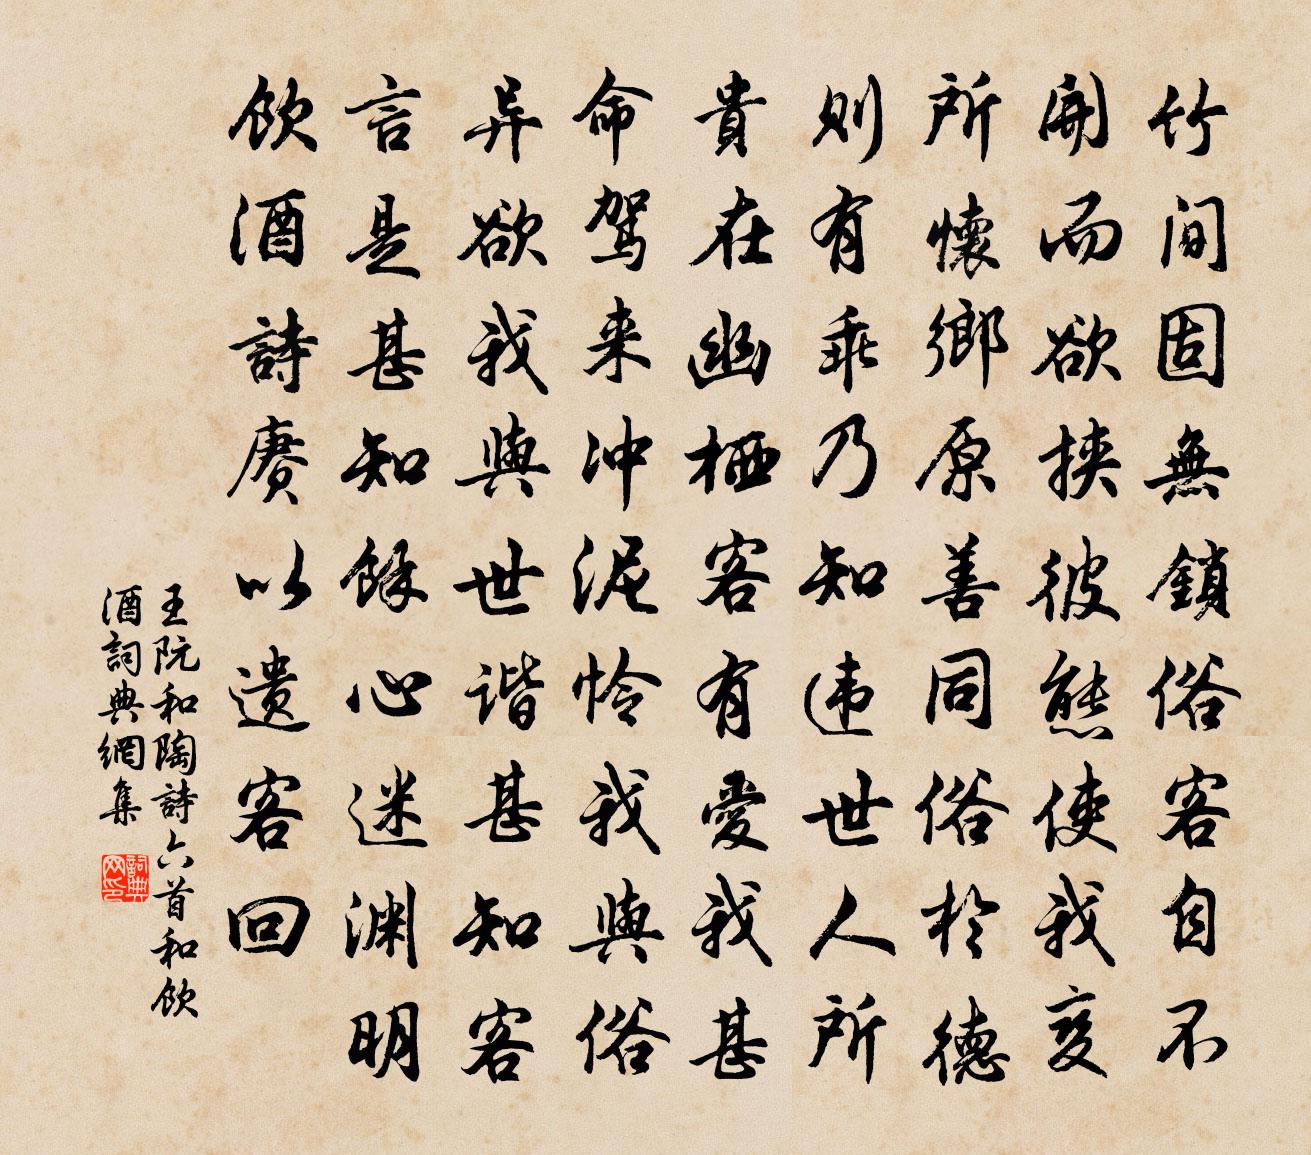 竹间固無鎖俗客自不
開而欲挾彼態使我变
所懷鄉原善同俗於德
则有乖乃知违世人所
貴在幽栖客有愛我甚
命駕来冲泥怜我與俗
异欲我與世谐甚知客
言是甚知餘心迷渊明
飲酒詩赓以遗客回
王阮和陶詩六首和飲
酒詞典網集
詞典网印